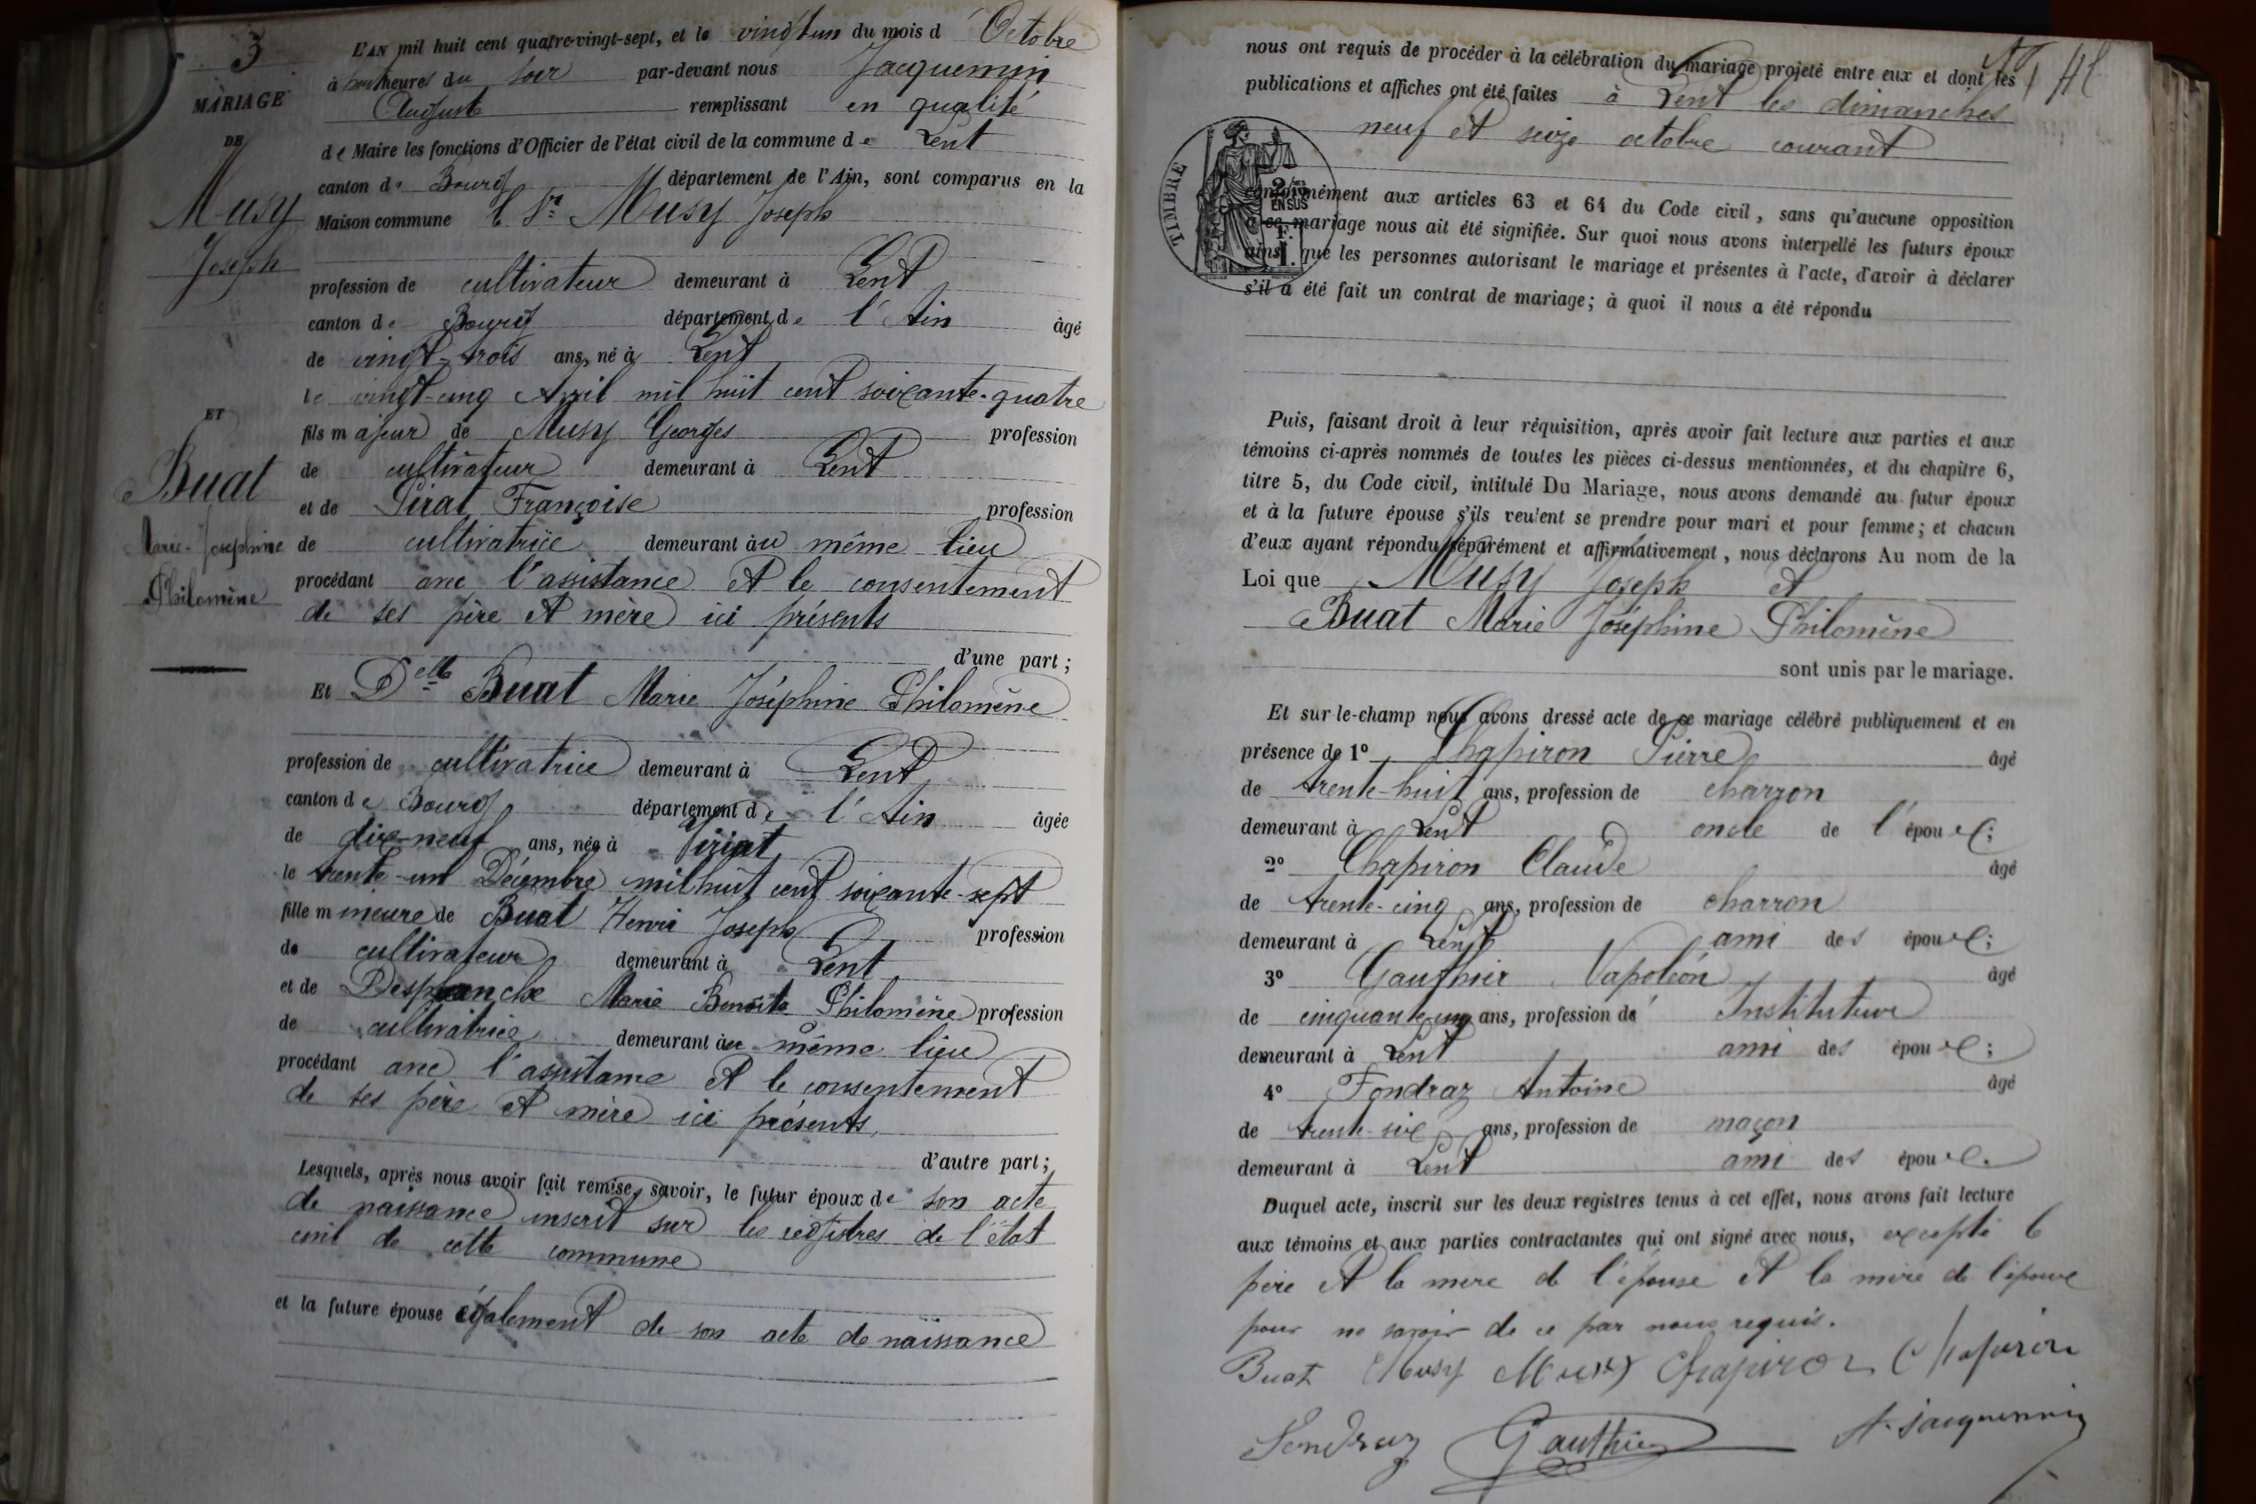 3
MARIAGE
DE
Musy
Joseph
ET
Buat
Marie-Josephine
Philomène
L'AN mil huit cent quatre-vingt-sept, et le vingt un du mois d'Octobre
à heures du soir par-devant nous Jacquemin
Auguste remplissant en qualité
de Maire les fonctions d'Officier de l'état civil de la commune de Lent
canton de Bourg département de l'Ain, sont comparus en la
Maison commune le Sr Musy Joseph
profession de cultivateur demeurant à Lent
canton de Bourg département de l'Ain âgé
de vingt-trois ans, né à Lent
le vingt-cinq Avril mil huit cent soixante-quatre
fils majeur de Musy Georges profession
de cultivateur demeurant à Lent
et de Pirat Françoise profession
de cultivatrice demeurant au même lieu
procédant avec l'assistance et le consentement
de ses père et mère ici présents
d'une part;
Et Delle Buat Marie Joséphine Philomène
profession de cultivatrice demeurant à Lent
canton de Bourg département de l'Ain âgée
de dix-neuf ans, née à Viriat
le trente-un Décembre mil huit cent soixante-sept
fille mineure de Buat Henri Joseph profession
de cultivateur demeurant à Lent
et de Desplanche Marie Benoîte Philomène profession
de cultivatrice demeurant au même lieu
procédant avec l'assistance et le consentement
de ses père et mère ici présents,
d'autre part;
Lesquels, après nous avoir fait remise, savoir, le futur époux de son acte
de naissance inscrit sur les registres de l'état
civil de cette commune
et la future épouse également de son acte de naissance
nous ont requis de procéder à la célébration du mariage projeté entre eux et dont les
publications et affiches ont été faites à Lent les dimanches
neuf et seize octobre courant
TIMBRE
2/10 EN SUS
F.
1.
conformément aux articles 63 et 64 du Code civil, sans qu'aucune opposition
à ce mariage nous ait été signifiée. Sur quoi nous avons interpellé les futurs époux
ainsi que les personnes autorisant le mariage et présentes à l'acte, d'avoir à déclarer
s'il a été fait un contrat de mariage; à quoi il nous a été répondu
Puis, faisant droit à leur réquisition, après avoir fait lecture aux parties et aux
témoins ci-après nommés de toutes les pièces ci-dessus mentionnées, et du chapitre 6,
titre 5, du Code civil, intitulé Du Mariage, nous avons demandé au futur époux
et à la future épouse s'ils veulent se prendre pour mari et pour femme; et chacun
d'eux ayant répondu séparément et affirmativement, nous déclarons Au nom de la
Loi que Musy Joseph et
Buat Marie Joséphine Philomène
sont unis par le mariage.
Et sur-le-champ nous avons dressé acte de ce mariage célébré publiquement et en
présence de 1° Chapiron Pierre âgé
de trente-huit ans, profession de charron
demeurant à Lent oncle de l'époux;
2° Chapiron Claude âgé
de trente-cinq ans, profession de charron
demeurant à Lent ami des époux;
3° Gauthier Napoléon âgé
de cinquante-cinq ans, profession d' Instituteur
demeurant à Lent ami des époux;
4° Fondraz Antoine âgé
de trente-six ans, profession de maçon
demeurant à Lent ami des époux.
Duquel acte, inscrit sur les deux registres tenus à cet effet, nous avons fait lecture
aux témoins et aux parties contractantes qui ont signé avec nous, excepté le
père et la mère de l'épouse et la mère de l'époux
pour ne savoir de ce par nous requis.
Buat Musy Musy Chapiron Chapiron
Fondraz Gauthier A. Jacquemin